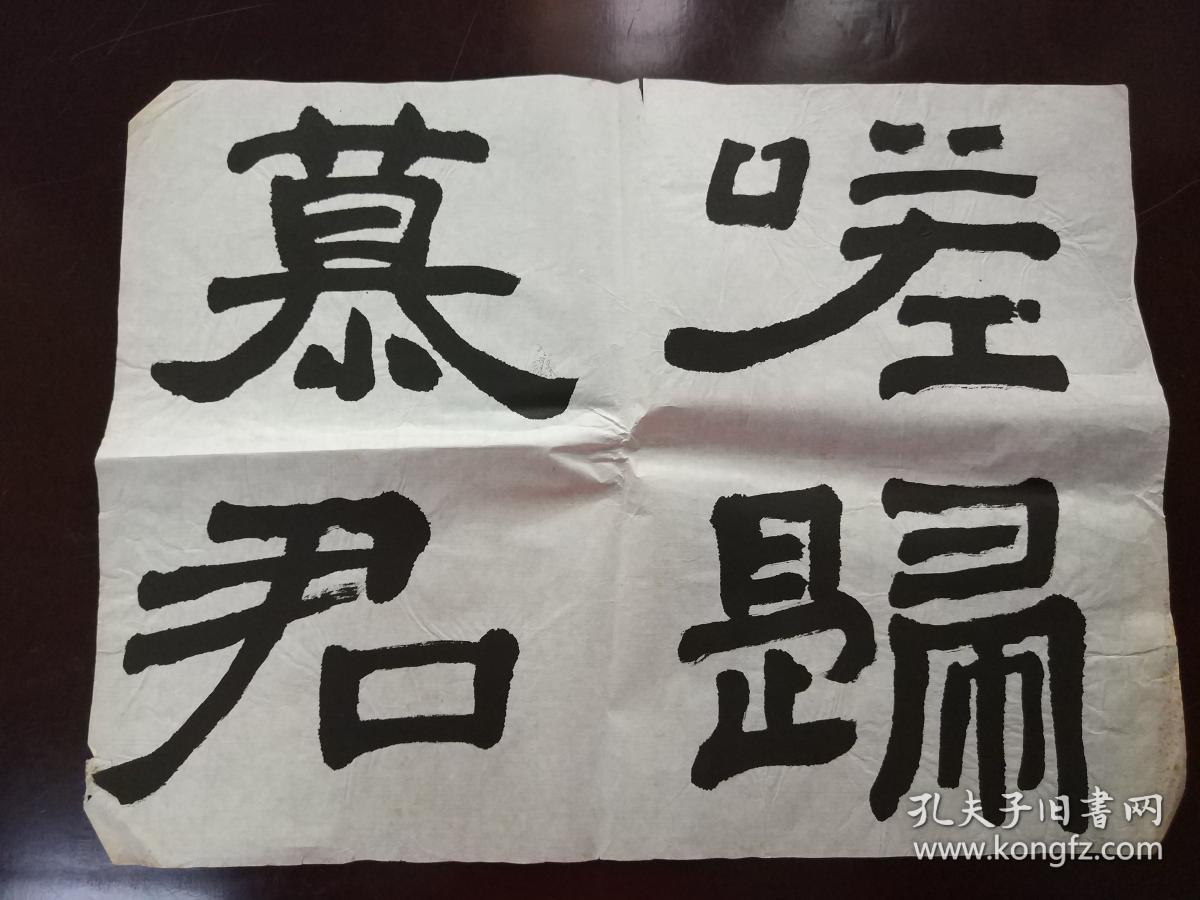 嗟歸
慕君
孔夫子旧書网
www.kongfz.com